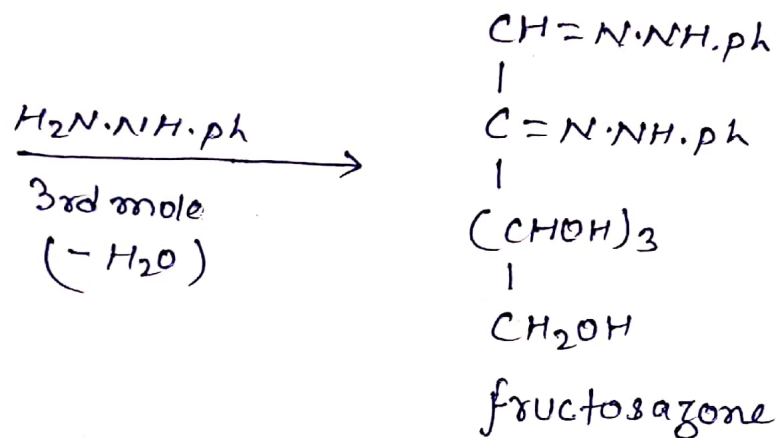 H₂N·NH·ph
3rd mole
(- H₂O)
CH = N·NH.ph
|
C = N·NH.ph
|
(CHOH)₃
|
CH₂OH
fructosazone